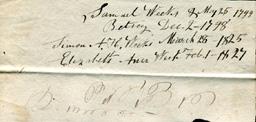 Samuel Weeks May 25 1799
Betsey Dec 2-1798
Simon A. H. Weeks March 25-1825
Elizabeth Ann Week Feb 1-1827